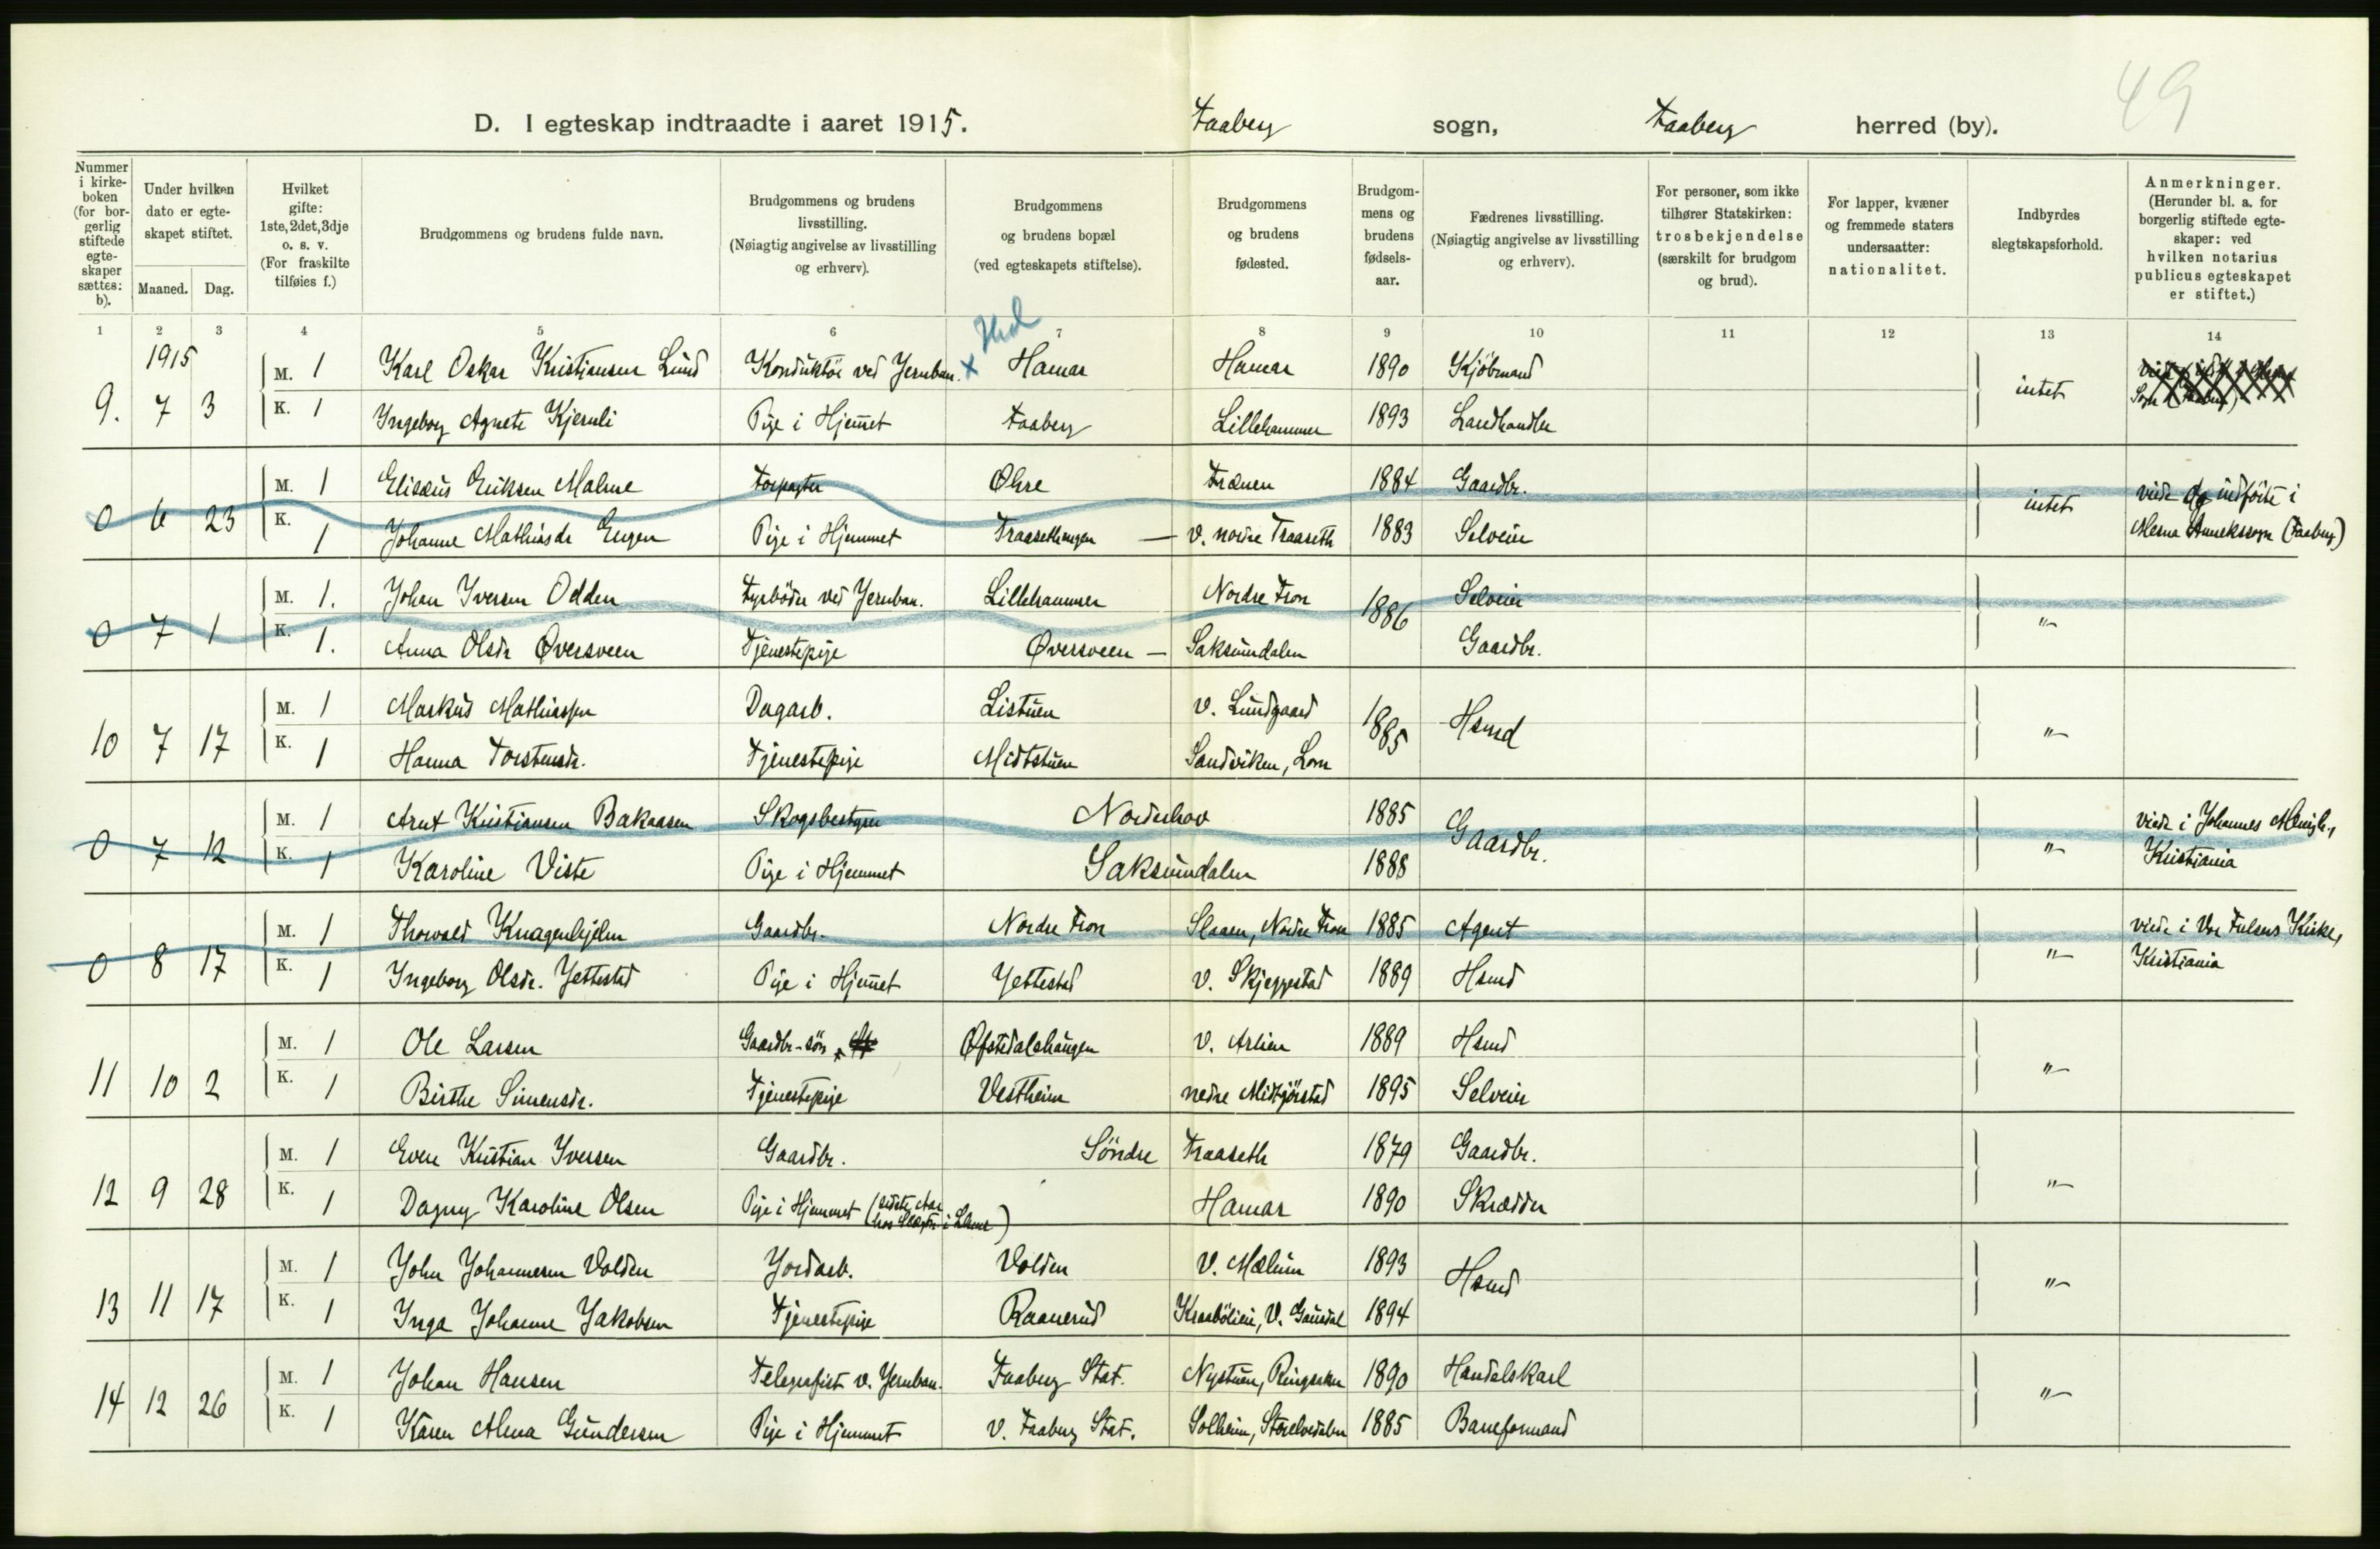 49
D. I egteskap indtraadte i aaret 1915. Faaberg sogn, Faaberg herred (by).
Nummer i kirkeboken (for borgerlig stiftede egteskaper sættes: b).
Under hvilken dato er egteskapet stiftet.
Maaned. Dag.
Hvilket gifte: 1ste, 2det, 3dje o. s. v. (For fraskilte tilføies f.)
Brudgommens og brudens fulde navn.
Brudgommens og brudens livsstilling. (Nøiagtig angivelse av livsstilling og erhverv).
Brudgommens og brudens bopæl (ved egteskapets stiftelse).
Brudgommens og brudens fødested.
Brudgommens og brudens fødselsaar.
Fædrenes livsstilling. (Nøiagtig angivelse av livsstilling og erhverv).
For personer, som ikke tilhører Statskirken: trosbekjendelse (særskilt for brudgom og brud).
For lapper, kvæner og fremmede staters undersaatter: nationalitet.
Indbyrdes slegtskapsforhold.
Anmerkninger. (Herunder bl. a. for borgerlig stiftede egteskaper: ved hvilken notarius publicus egteskapet er stiftet.)
1 2 3 4 5 6 7 8 9 10 11 12 13 14
1915
M. 1 Karl Oskar Kristiansen Lund Konduktör ved Jernban. x Hamar Hamar 1890 Kjöbmand
9. 7 3 intet
K. 1 Ingeborg Agnete Kjernli Pige i Hjemmet Faaberg Lillehammer 1893 Landhandler
M. 1 Elisæus Eriksen Malme Forpagter Øhre Frænen 1884 Gaardbr. viede og indförte i
0 6 23 intet
K. 1 Johanne Mathiasdr Engen Pige i Hjemmet Traasethengen — v. nordre Traaseth 1883 Selveier Mesna Annekssogn (Faaberg)
M. 1. Johan Iversen Odden Fyrböder ved Jernban. Lillehammer Nordre Fron 1886 Selveier
0 7 1 "
K. 1. Anna Olsdr Øversveen Tjenestepige Øversveen — Saksumdalen Gaardbr.
M. 1 Markus Mathiassen Dagarb. Listuen v. Lundgaard 1885 Hsmd
10 7 17 "
K. 1 Hanna Torstensdr. Tjenestepige Midtstuen Sandviken, Lom
M. 1 Arnt Kristiansen Bakaasen Skogsbestyrer Norderhov 1885 Gaardbr. viede i Johannes Menigh.,
0 7 12 "
K. 1 Karoline Viste Pige i Hjemmet Saksumdalen 1888 Kristiania
M. 1 Thorvald Knagenhjelm Gaardbr. Nordre Fron Slaaen, Nordre Fron 1885 Agent viede i Vor Frelsers Kirke,
0 8 17 "
K. 1 Ingeborg Olsdr. Jettestad Pige i Hjemmet Jettestad v. Skjeggestad 1889 Hsmd Kristiania
M. 1 Ole Larsen Gaardbr-sön Øfstedalshaugen v. Arlien 1889 Hsmd
11 10 2 "
K. 1 Birthe Simensdr. Tjenestepige Vestheim nedre Midtjörstad 1895 Selveier
M. 1 Even Kristian Iversen Gaardbr. Söndre Traaseth 1879 Gaardbr.
12 9 28 "
K. 1 Dagny Karoline Olsen Pige i Hjemmet (sidste Aar hos Slægtn. i Lhmr) Hamar 1890 Skrædder
M. 1 John Johannesen Volden Jordarb. Volden v. Mælum 1893 Hsmd
13 11 17 "
K. 1 Inga Johanne Jakobsen Tjenestepige Raanerud Kraabölien, V. Gausdal 1894
M. 1 Johan Hansen Telegrafist v. Jernban. Faaberg Stat. Nystuen, Ringsaker 1890 Handelskarl
14 12 26 "
K. 1 Karen Alma Gundersen Pige i Hjemmet v. Faaberg Stat. Solheim, Storelvedalen 1885 Baneformand